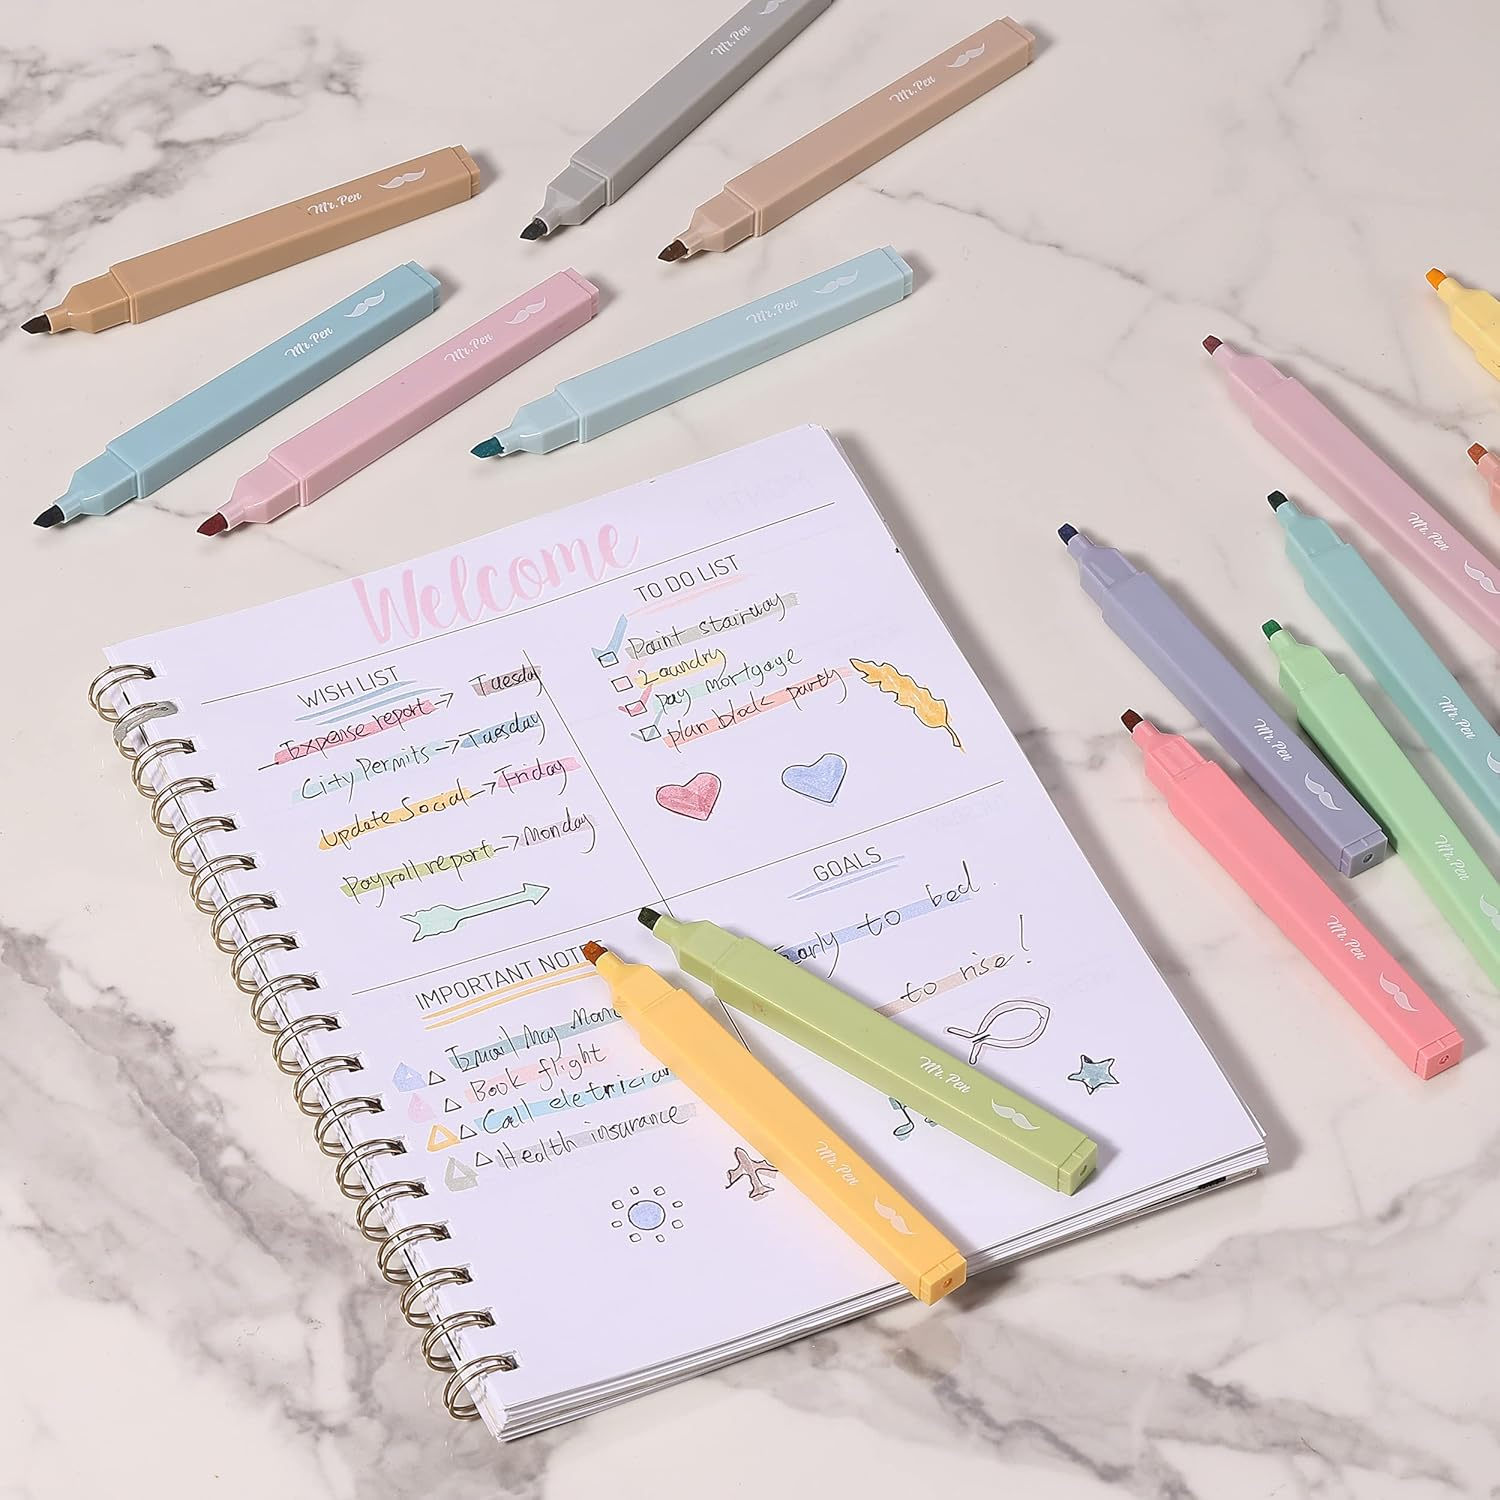 Mr. Pen
Mr. Pen
Mr. Pen
Mr. Pen
Mr. Pen
Mr. Pen
Welcome
WISH LIST
Expense report -> Tuesday
City Permits -> Tuesday
Update Social -> Friday
Payroll report -> Monday
TO DO LIST
Paint stairway
Laundry
pay mortgage
plan block party
IMPORTANT NOTES
Email May
Book flight
Call eletrician
Health insurance
GOALS
Early to bed
to rise!
Mr. Pen
Mr. Pen
Mr. Pen
Mr. Pen
Mr. Pen
Mr. Pen
Mr. Pen